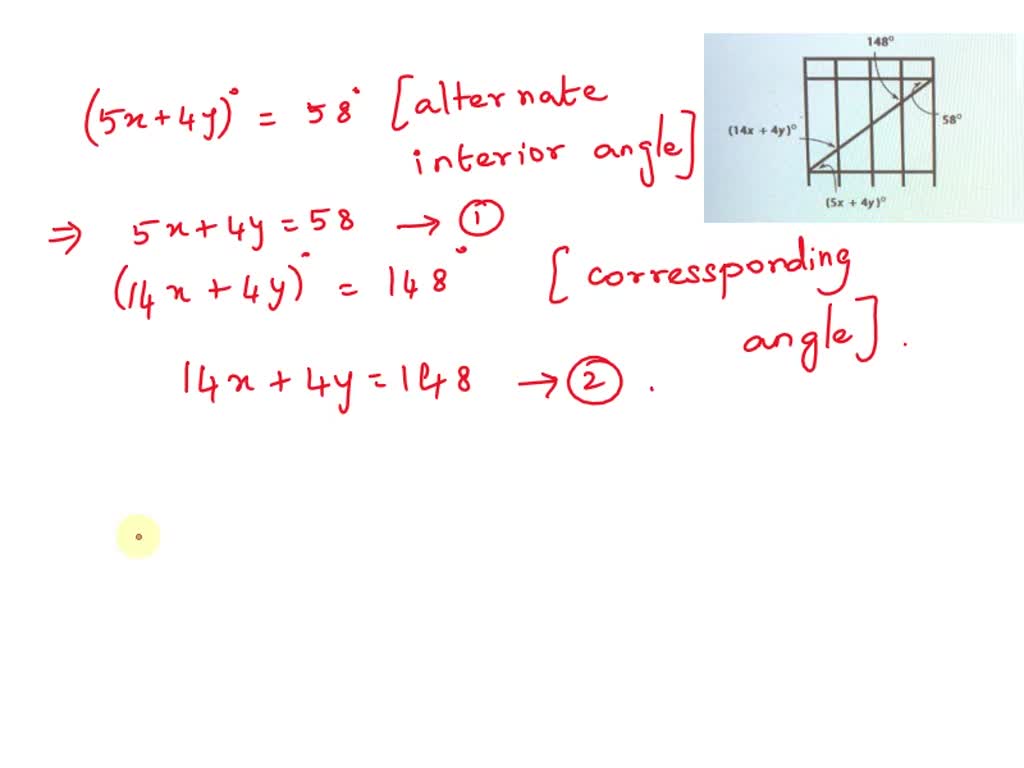 (5x+4y)° = 58° [alternate
interior angle]
⇒ 5x+4y=58 → ①
(14x + 4y)° = 148° [corressponding
angle].
14x + 4y = 148 → ②.
148°
58°
(14x + 4y)°
(5x + 4y)°